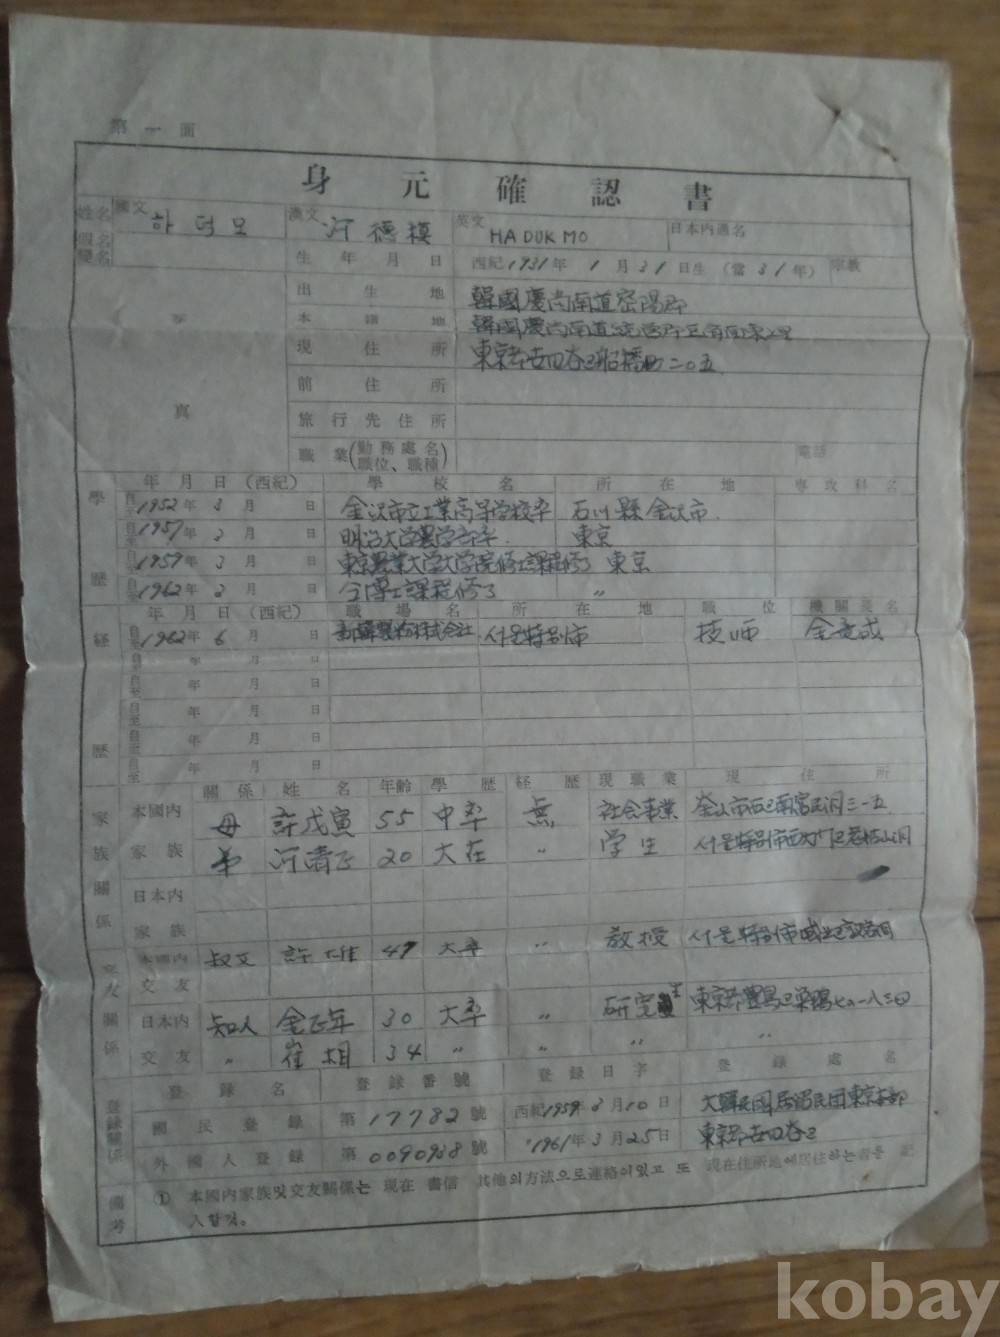 第一面
身元確認書
姓名 國文 하덕모 漢文 河德模 英文 HA DUK MO 日本內通名
假名 變名 生年月日 西紀1931年1月31日生(當31年) 宗敎
寫眞
出生地 韓國慶尚南道密陽郡
本籍地 韓國慶尚南道
現住所 東京都世田谷区船橋町二〇五
前住所
旅行先住所
職業(勤務處名 職位、職種) 電話
學歷 年月日(西紀) 學校名 所在地 專攻科名
自至1952年3月日 金沢市立工業高等学校卒 石川縣金沢市
自至1957年3月日 明治大学農学部卒 東京
自至1959年3月日 東京農業大学大学院修士課程修了 東京
自至1962年3月日 仝博士課程修了 〃
経歷 年月日(西紀) 職場名 所在地 職位 機關長名
自至1962年6月日 株式会社 서울特別市 技師
自至 年月日
自至 年月日
自至 年月日
自至 年月日
自至 年月日
家族關係 關係 姓名 年齡 學歷 経歷 現職業 現住所
本國內家族 母 許戊寅 55 中卒 無 社会事業 釜山市
弟 河清正 20 大在 〃 学生 서울特別市西大门区
日本內家族
交友關係 本國內交友 叔父 許雄 47 大卒 〃 敎授 서울特別市城北区
日本內交友 知人 金正年 30 大卒 〃 研究生 東京都豊島区巣鴨
〃 崔相 34 〃 〃 〃 〃
登錄關係 登錄名 登錄番號 登錄日字 登錄處名
國民登錄 第17782號 西紀1959年3月10日 大韓民国居留民団東京本部
外國人登錄 第0090938號 〃1961年3月25日 東京都世田谷区
備考 ① 本國內家族및交友關係는 現在 書信 其他의方法으로連絡이있고 또 現在住所地에居住하는者를 記
入할것。
kobay